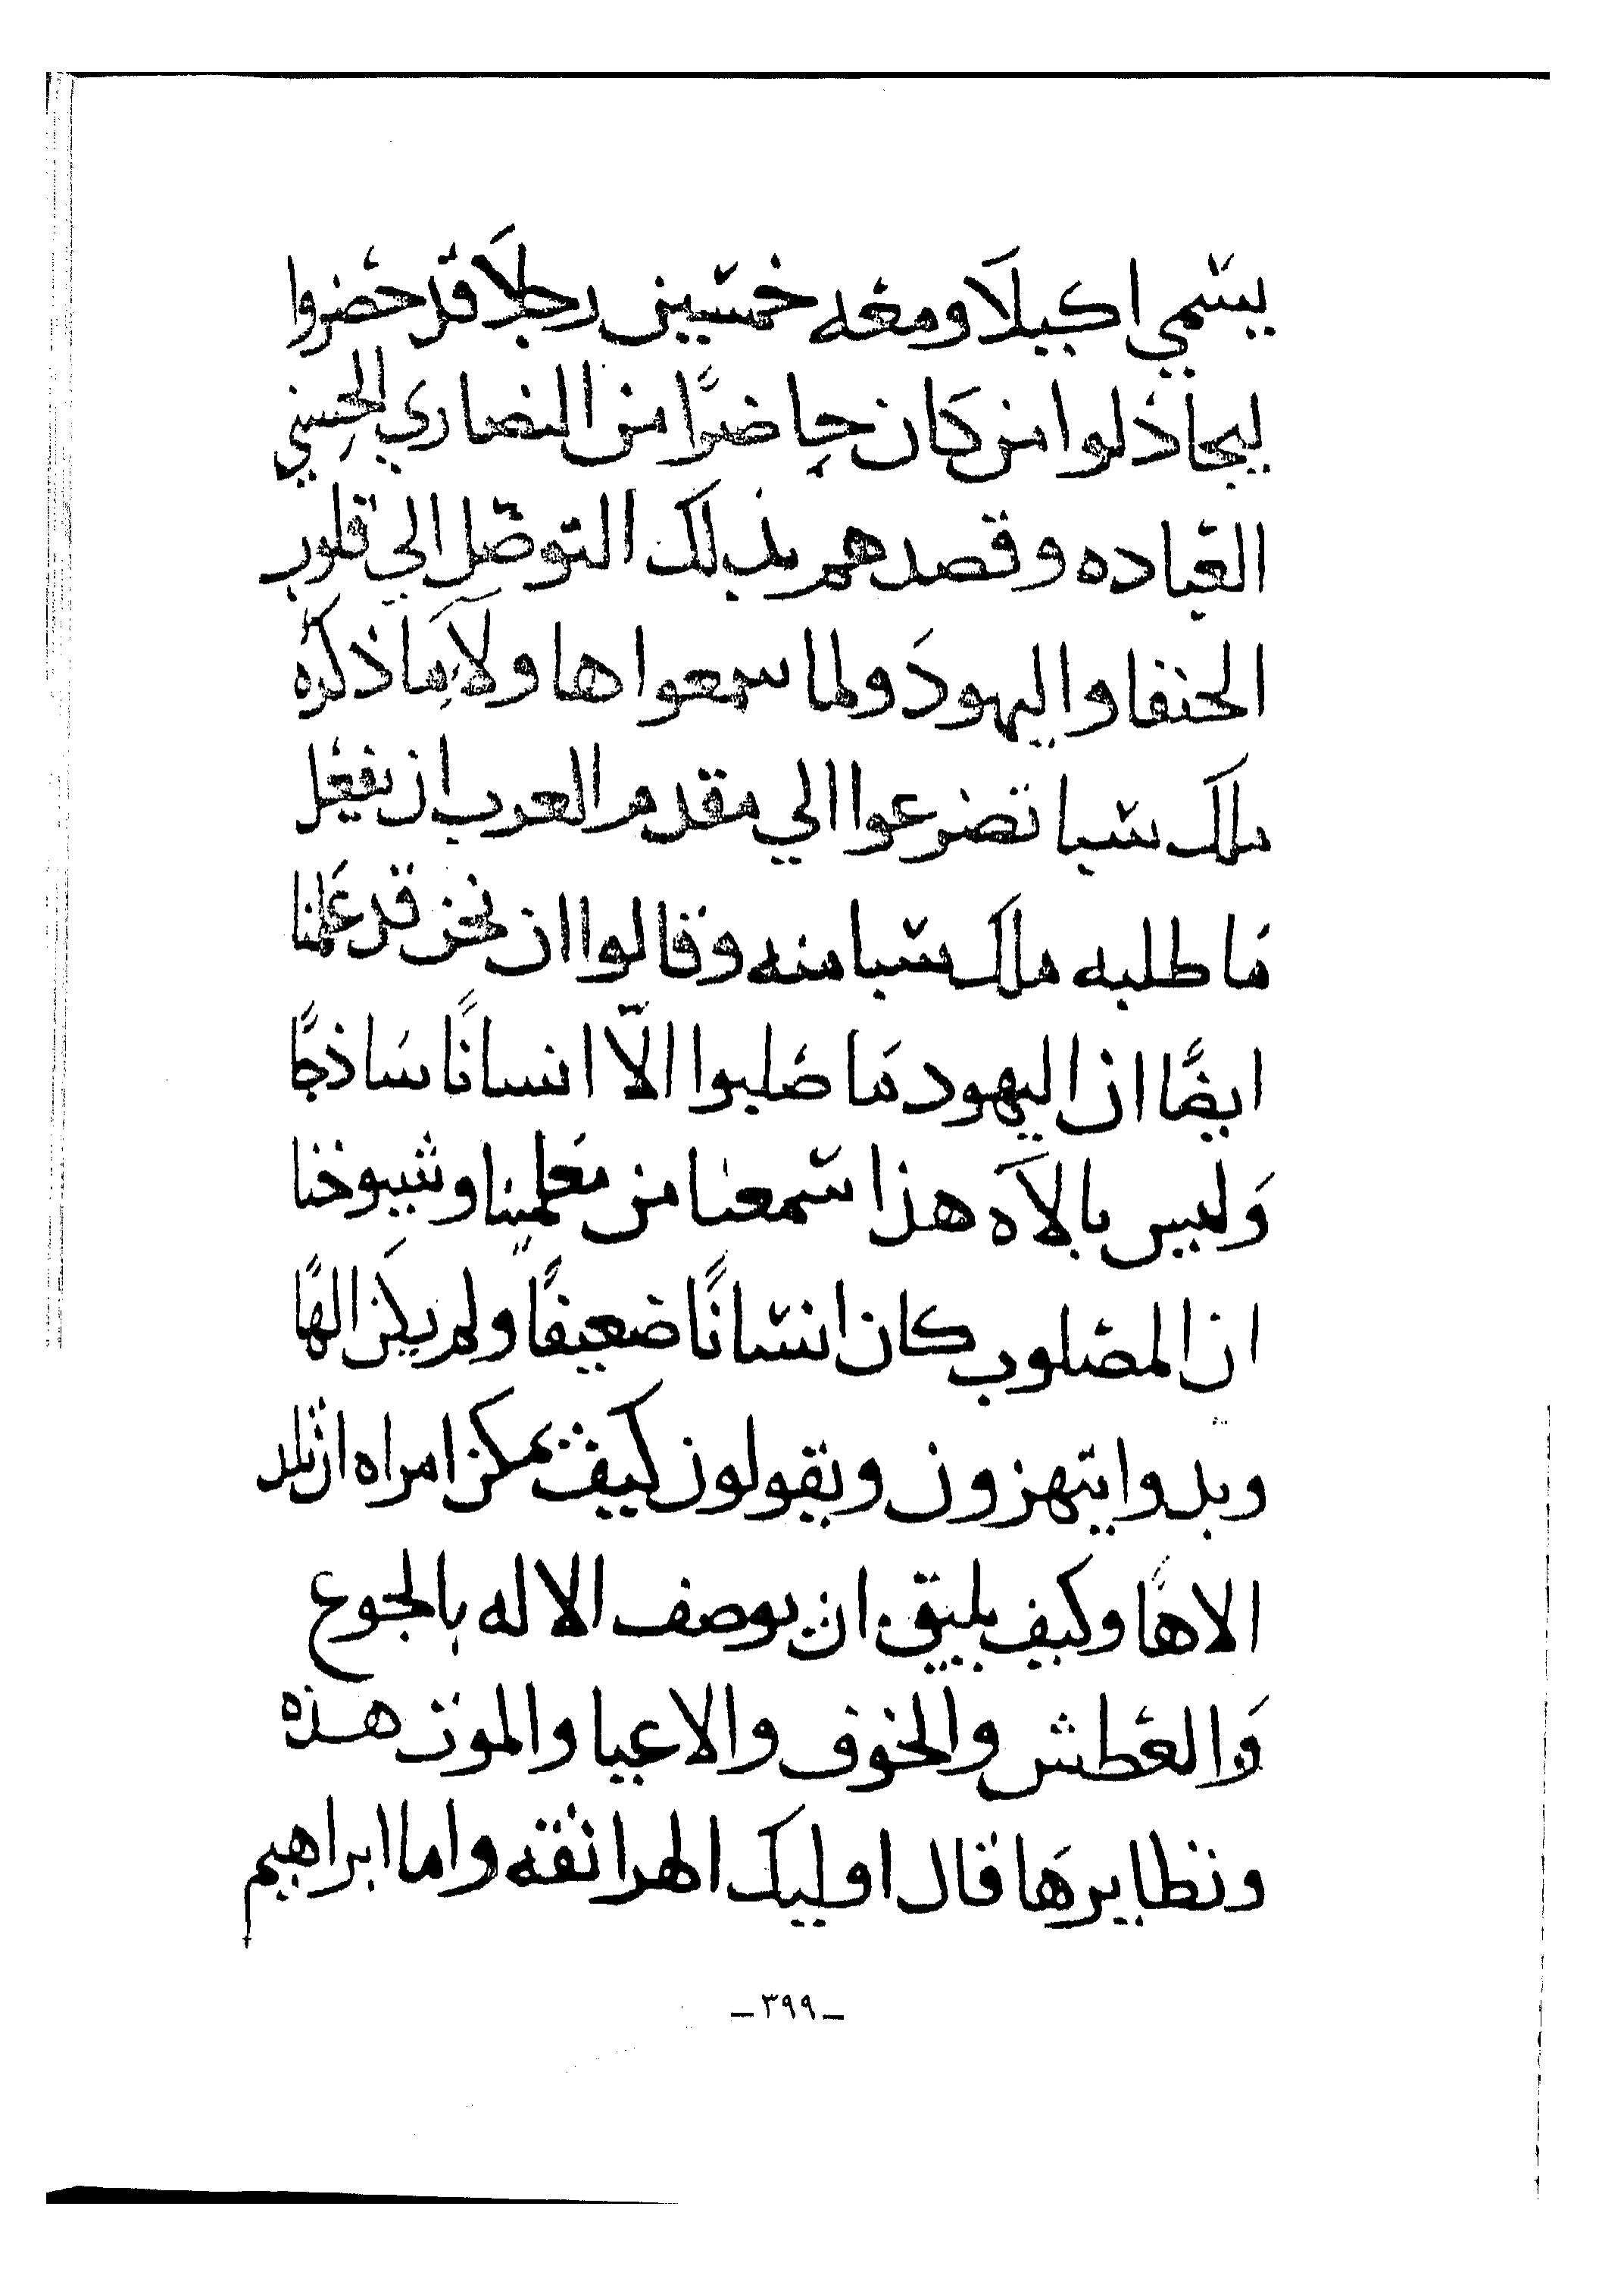 يسمي اكيلَا ومعه خمسين رجلَا قد حضروا
ليجاذلوا من كَان حاضرًا من النصاري الحسني
العباده وقصدهم بذلك التوصل الي قلوب
الحنفا واليهودَ ولما سمعوا ها ولآءِ مَا ذكره
ملك سبا تضرعوا الي مقدم العرب ان يفعل
مَا طلبه ملك سبا منه وقالوا ان نحن قد عَلمنا
ايضًا ان اليهود مَا صلبوا الّا انسانًا سَاذجًا
وَليس بالاَه هذا سمعنا من معَلمينا وشيوخنا
ان المصلوب كان انسانًا ضعيفًا ولم يكَن الهًا
وبدوا يتهزون ويقولون كيف يمكن امراه ان تلد
الاهًا وكيف يليق ان يوصف الاله بالجوع
وَالعطش والخوف والاعيا والموت هذه
ونظايرهَا قال اوليك الهراتقه واما ابراهيم
ـ ٣٩٩ ـ